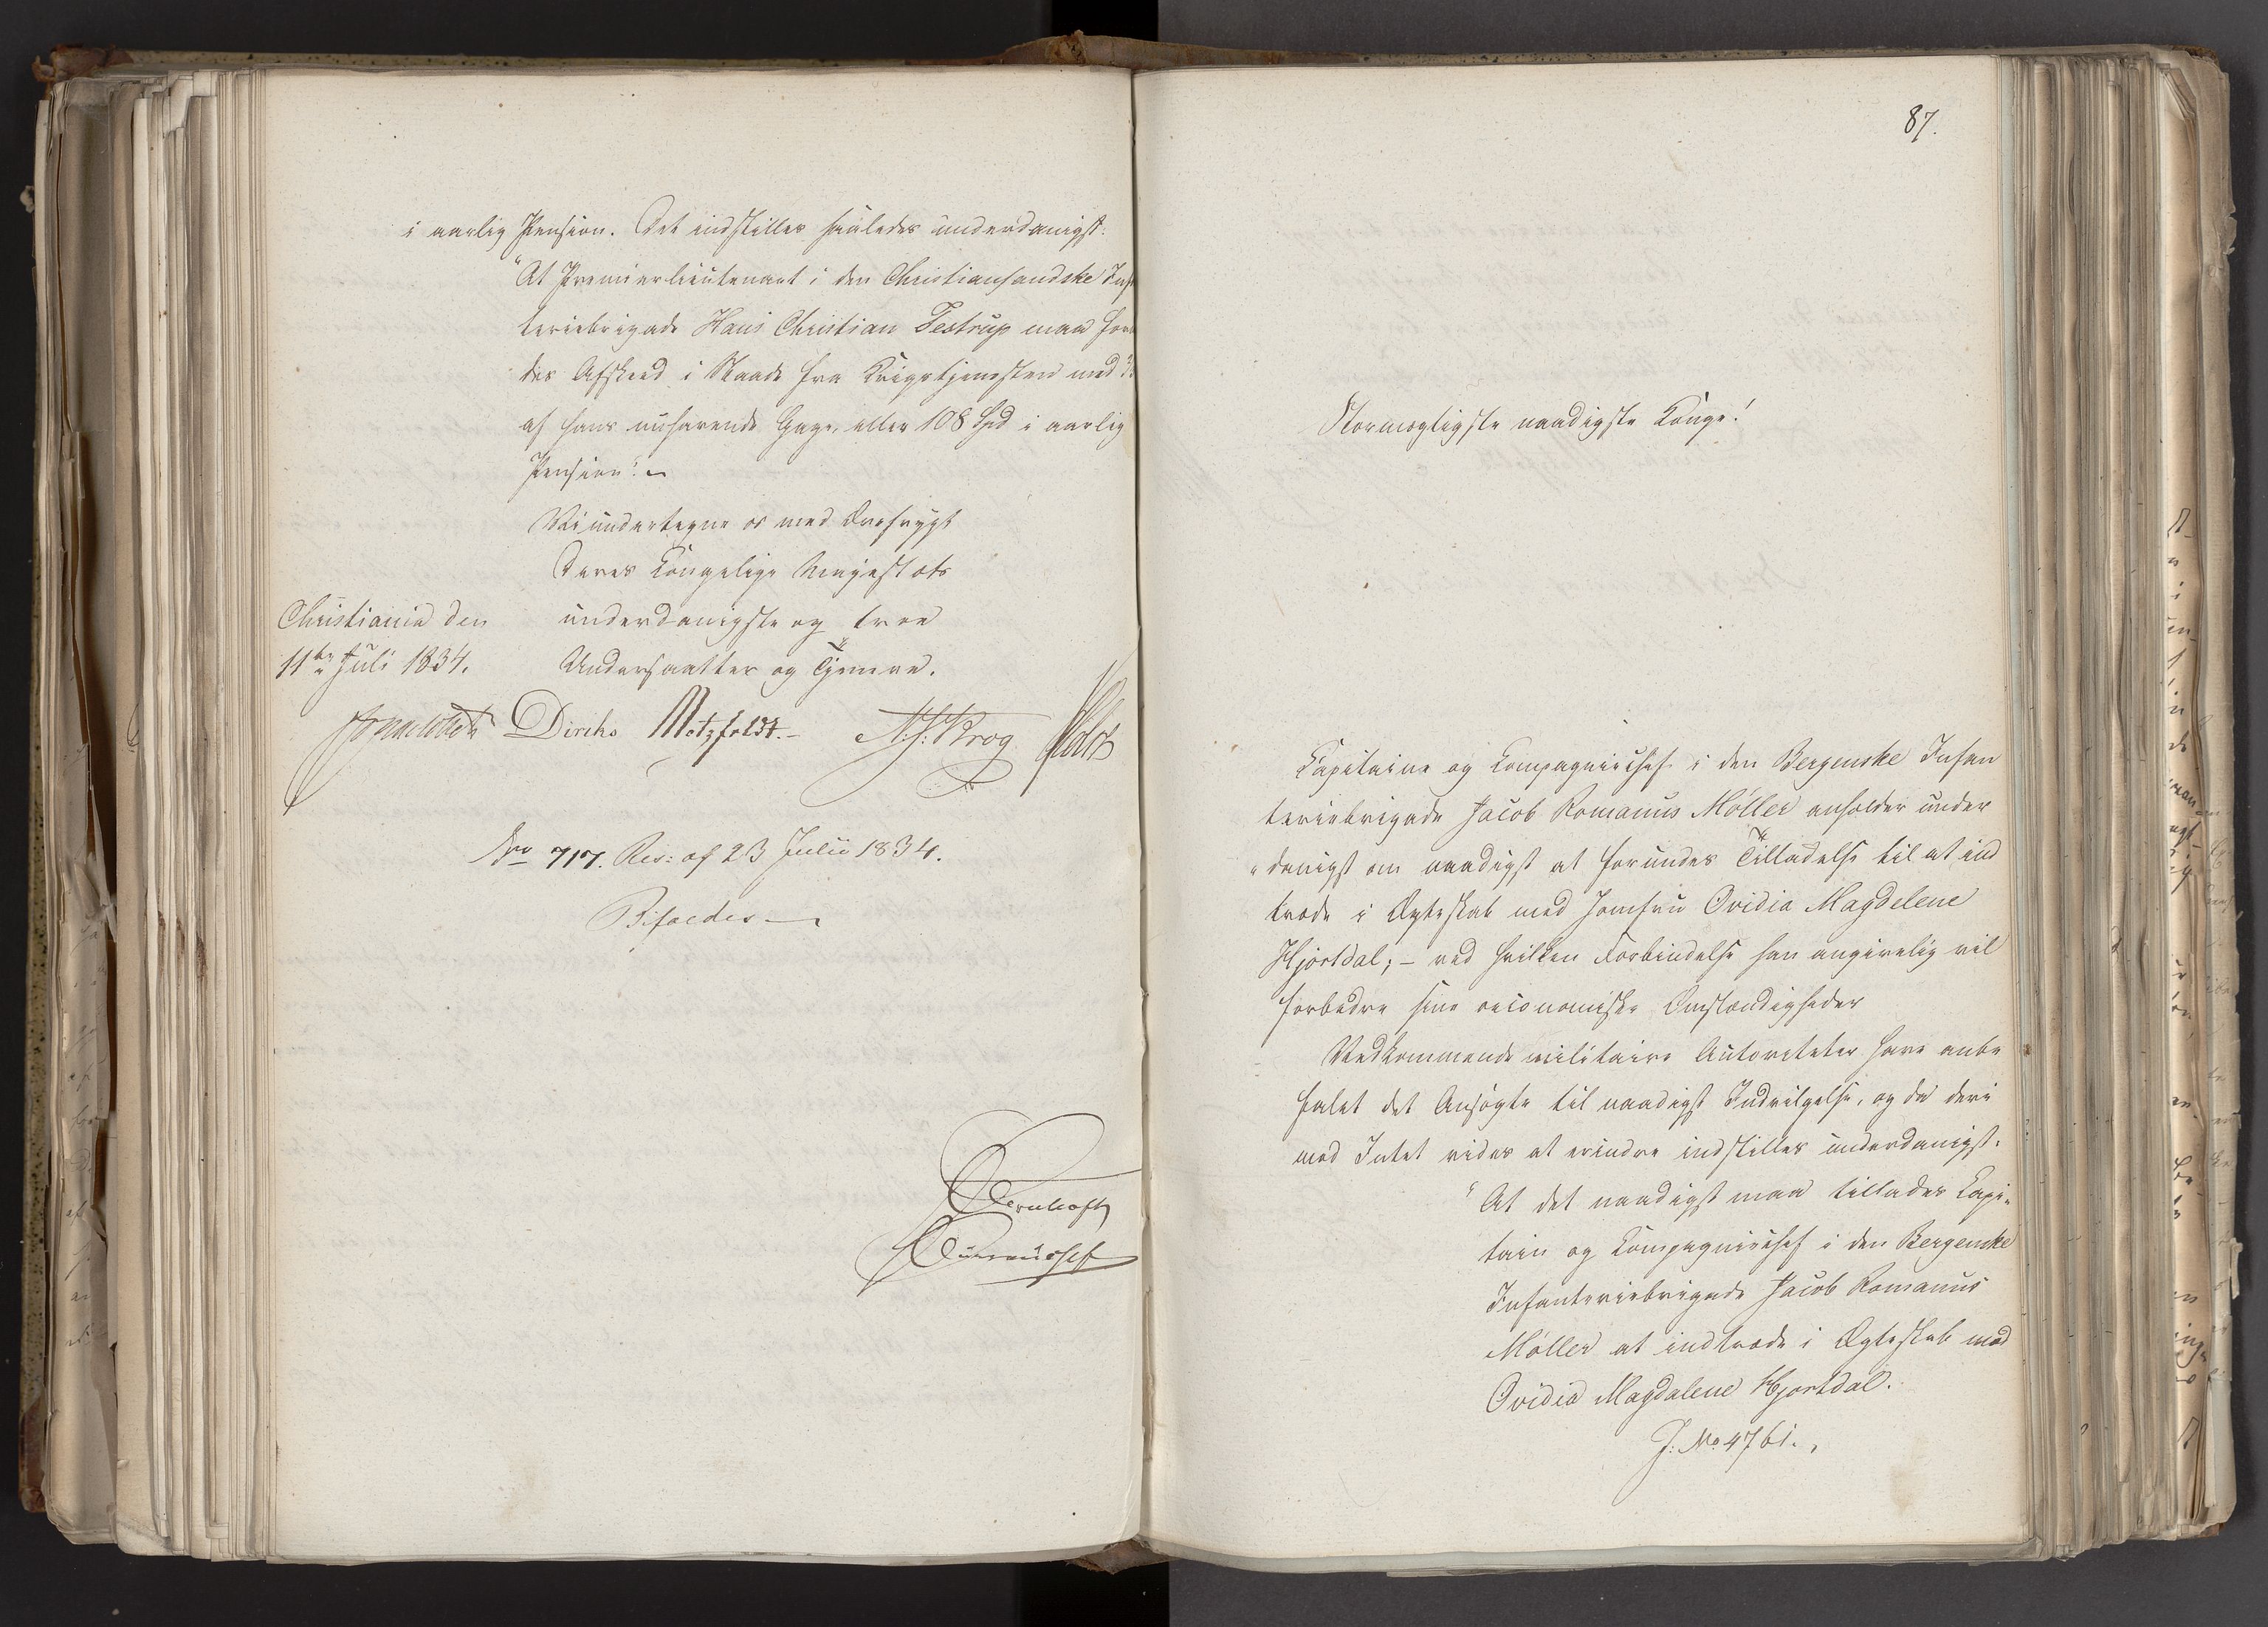 i aarlig Pension. Det indstilles saaledes underdanigst:
"At Premierlieutenant i den Christiansandske Inf
teriebrigade Hans Christian Testrup maa for
des Afskeed i Naade fra Krigstjenesten med
af hans nuhavende Gage, eller 108 Spd i aarlig
Pension".
Vi undertegne os med Ærefrygt
Deres Kongelige Majestæts
Christiania den underdanigste og troe
11te Juli 1834. Undersaatter og Tjenere.
Diriks Motzfeldt. N. J. Krog Holst
No 717. Res: af 23 Julii 1834.
Bifaldes
87.
Stormægtigste naadigste Konge!
Capitaine og Compagniechef i den Bergenske Infan
teriebrigade Jacob Romanus Möller anholder under
danigst om naadigst at forundes Tilladelse til at ind
træde i Ægteskab med Jomfru Ovidia Magdelene
Hjortdal; – ved hvilken Forbindelse han angivelig vil
forbedre sine oeconomiske Omstændigheder
Vedkommende militaire Autoriteter have anbe
falet det Ansøgte til naadigst Indvilgelse, og da deri
mod Intet vides at erindre indstilles underdanigst:
"At det naadigst maa tillades Capi
tain og Compagniechef i den Bergenske
Infanteriebrigade Jacob Romanus
Möller at indtræde i Ægteskab med
Ovidia Magdalene Hjortdal.
J: No 4761.